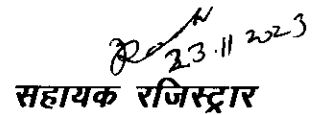 23.11 2023
सहायक रजिस्ट्रार